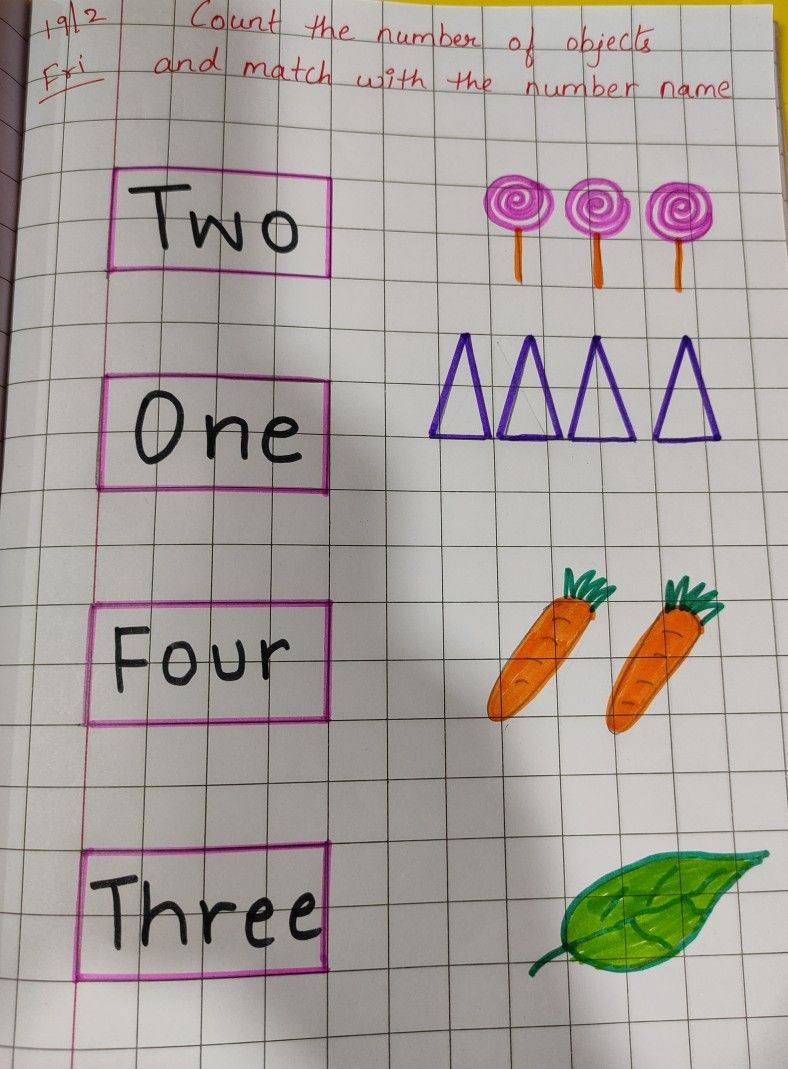 19/2 Count the number of objects
Fri and match with the number name
Two
One
Four
Three